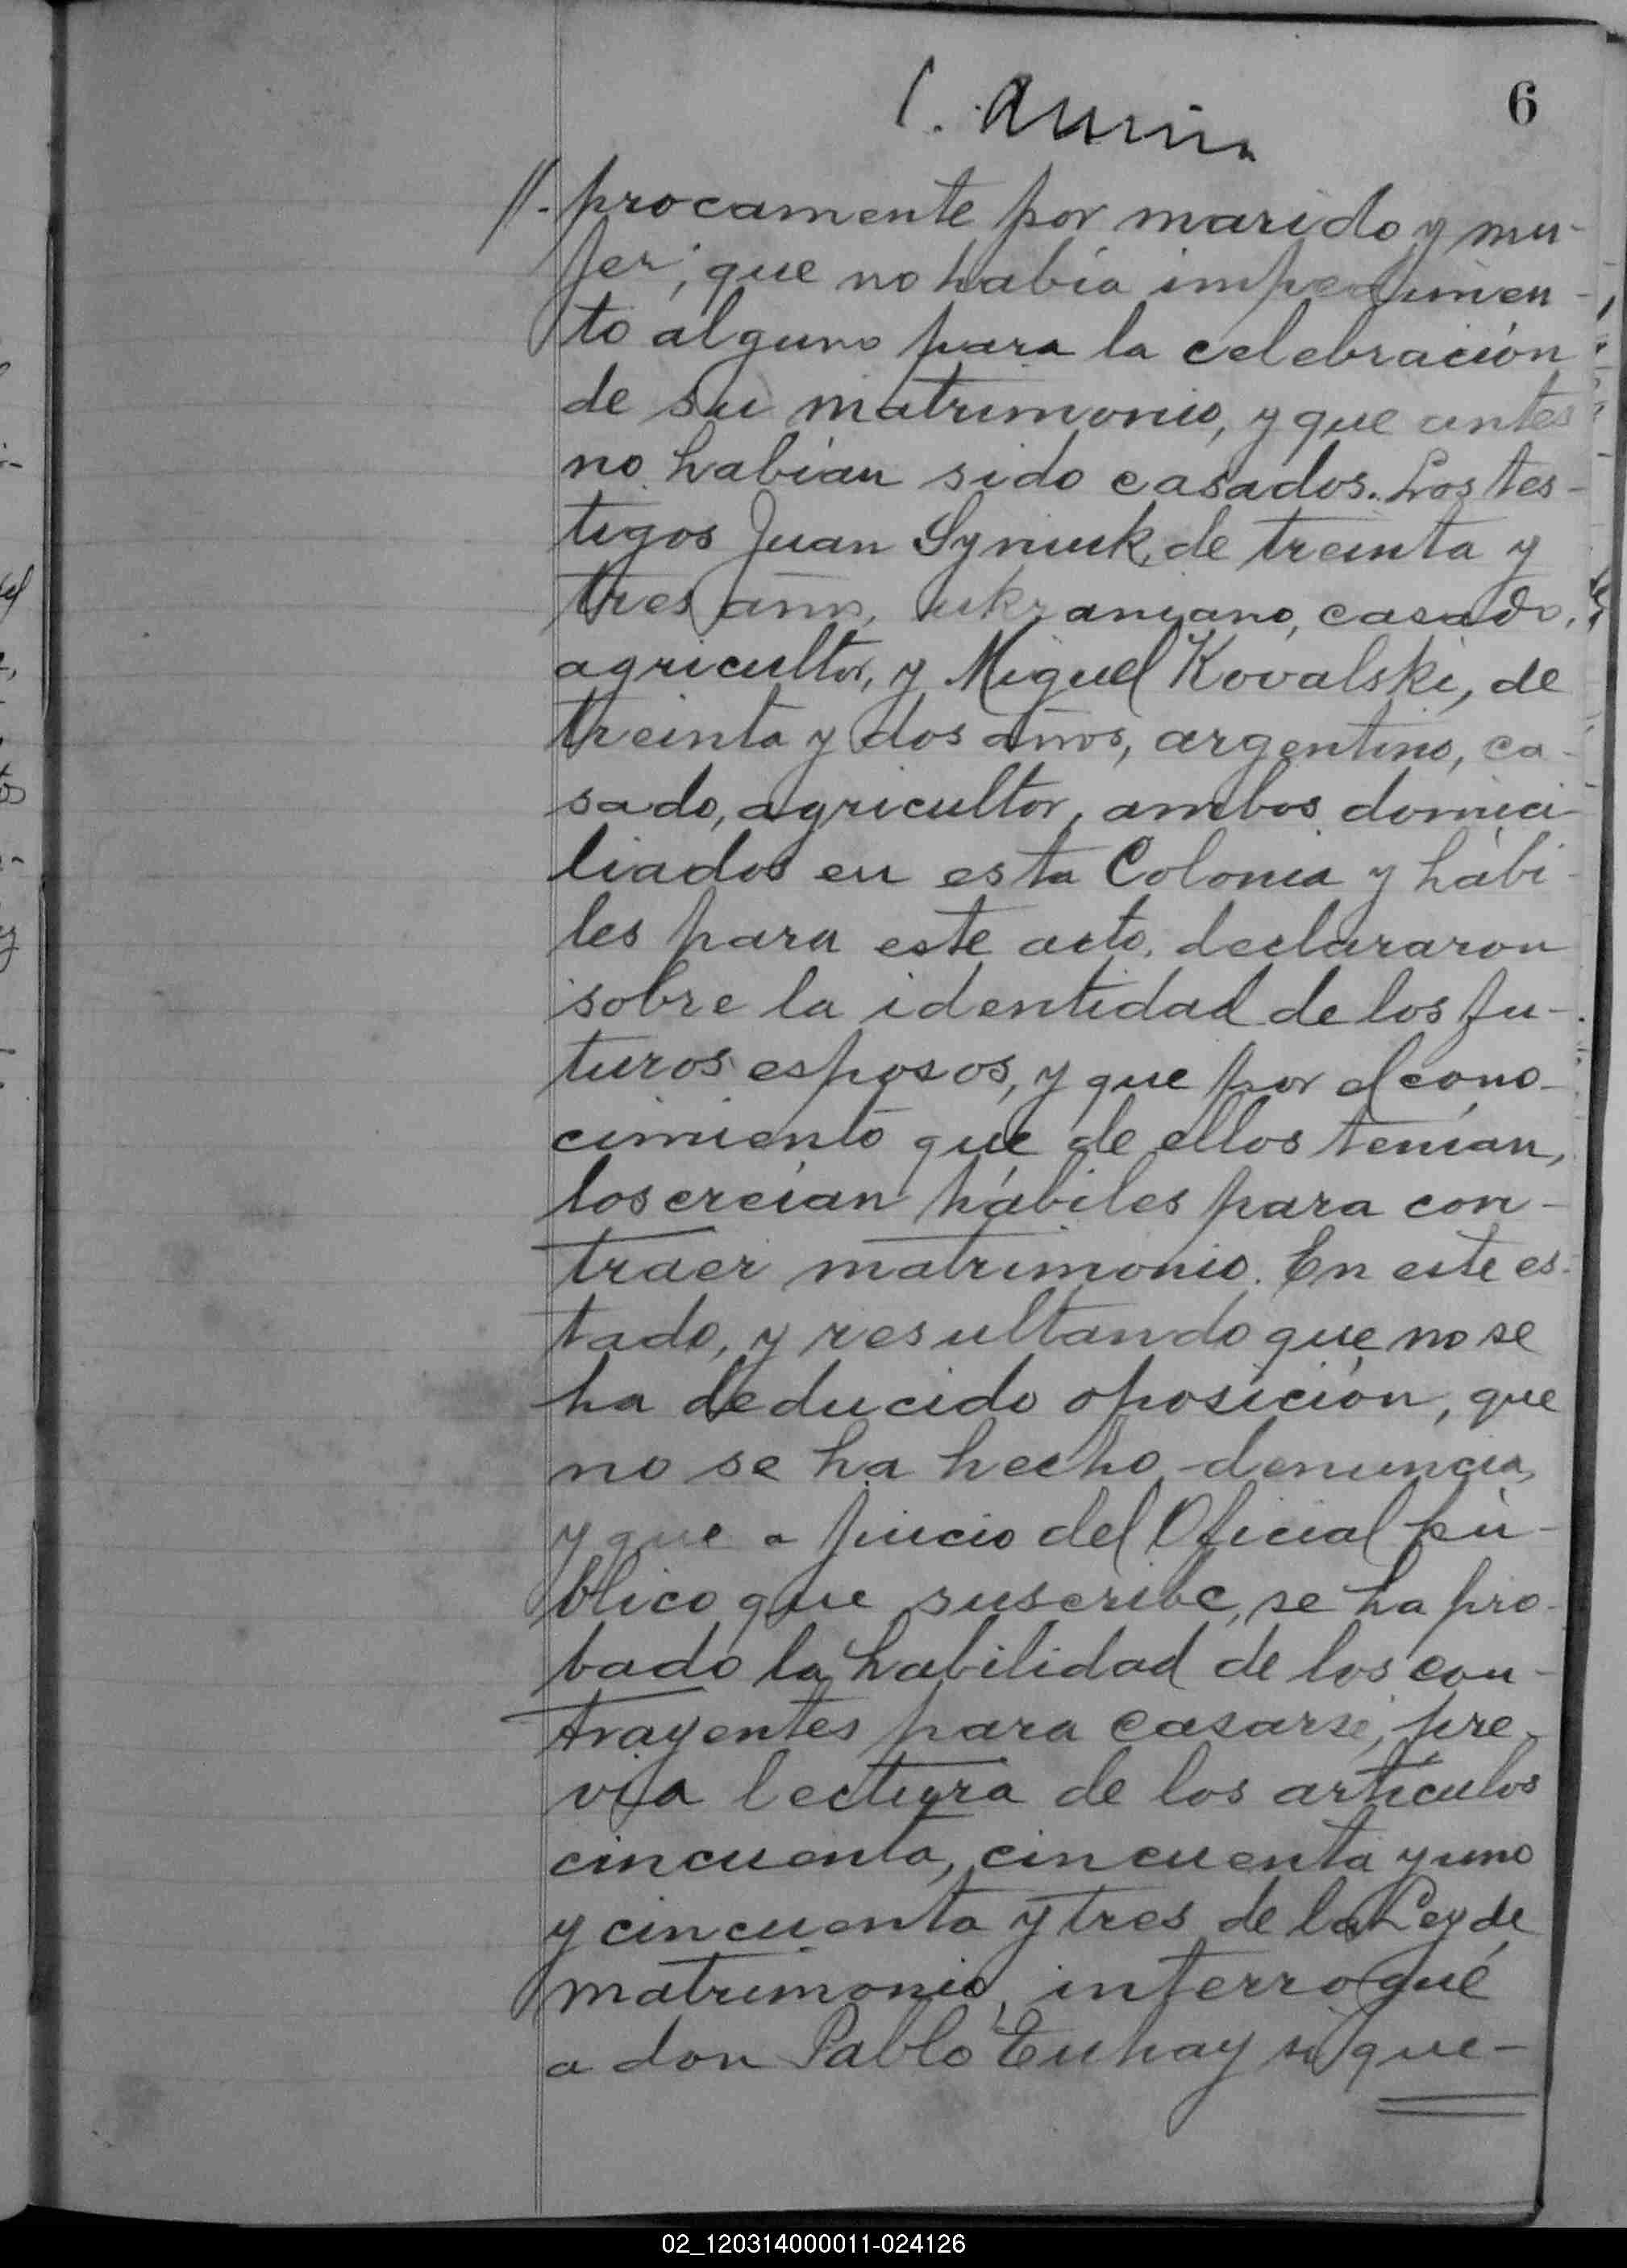 6
//. procamente por marido y mu-
jer; que no había impedimen-
to alguno para la celebración
de su matrimonio, y que antes
no habían sido casados. Los tes-
tigos Juan Syniuk, de treinta y
tres años, ukraniano, casado,
agricultor, y Miguel Kovalski, de
treinta y dos años, argentino, ca-
sado, agricultor, ambos domici-
liados en esta Colonia y hábi-
les para este acto, declararon
sobre la identidad de los fu-
turos esposos, y que por el cono-
cimiento que de ellos tenían,
los creían hábiles para con-
traer matrimonio. En este es-
tado, y resultando que no se
ha deducido oposición, que
no se ha hecho denuncia,
y que a juicio del Oficial pú-
blico que suscribe, se ha pro-
bado la habilidad de los con-
trayentes para casarse, pre-
via lectura de los artículos
cincuenta, cincuenta y uno
y cincuenta y tres de la Ley de
matrimonio, interrogué
a don Pablo Euhay si que-
02_120314000011-024126